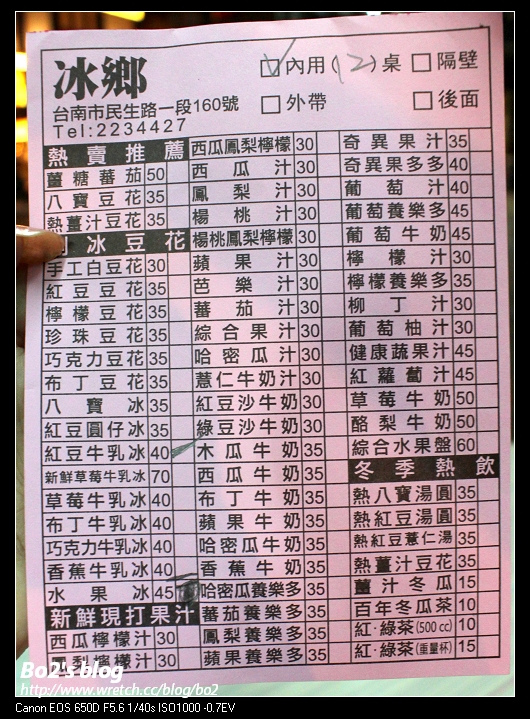 冰鄉
內用(12)桌 隔壁
外帶 後面
台南市民生路一段160號
Tel:2234427
熱賣推薦
薑糖蕃茄 50
八寶豆花 35
熱薑汁豆花 35
冰豆花
手工白豆花 30
紅豆豆花 35
檸檬豆花 35
珍珠豆花 35
巧克力豆花 35
布丁豆花 35
八寶冰 35
紅豆圓仔冰 35
紅豆牛乳冰 40
新鮮草莓牛乳冰 70
草莓牛乳冰 40
布丁牛乳冰 40
巧克力牛乳冰 40
香蕉牛乳冰 40
水果冰 45
新鮮現打果汁
西瓜檸檬汁 30
梨檸檬汁 30
西瓜鳳梨檸檬 30
西瓜汁 30
鳳梨汁 30
楊桃汁 30
楊桃鳳梨檸檬 30
蘋果汁 30
芭樂汁 30
蕃茄汁 30
綜合果汁 30
哈密瓜汁 30
薏仁牛奶汁 30
紅豆沙牛奶 30
綠豆沙牛奶 30
木瓜牛奶 35
西瓜牛奶 35
布丁牛奶 35
蘋果牛奶 35
哈密瓜牛奶 35
香蕉牛奶 35
哈密瓜養樂多 35
蕃茄養樂多 35
鳳梨養樂多 35
蘋果養樂多 35
奇異果汁 35
奇異果多多 40
葡萄汁 40
葡萄養樂多 45
葡萄牛奶 45
檸檬汁 30
檸檬養樂多 35
柳丁汁 30
葡萄柚汁 30
健康蔬果汁 45
紅蘿蔔汁 45
草莓牛奶 50
酪梨牛奶 50
綜合水果盤 60
冬季熱飲
熱八寶湯圓 35
熱紅豆湯圓 35
熱紅豆薏仁湯 35
熱薑汁豆花 35
薑汁冬瓜 15
百年冬瓜茶 10
紅·綠茶(500cc) 10
紅·綠茶(重量杯) 15
Bo2's blog
http://www.wretch.cc/blog/bo2
Canon EOS 650D F5.6 1/40s ISO1000 -0.7EV